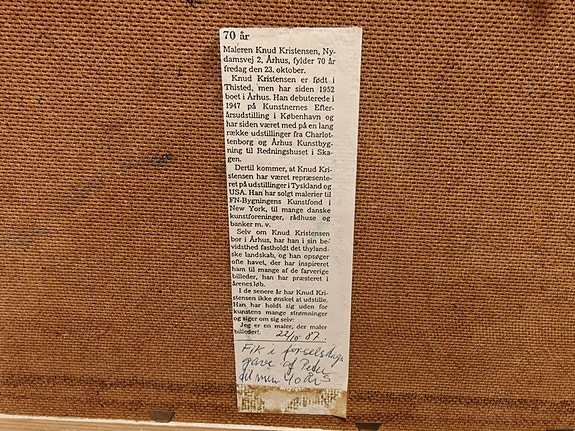 70 år
Maleren Knud Kristensen, Ny-
damsvej 2, Århus, fylder 70 år
fredag den 23. oktober.
Knud Kristensen er født i
Thisted, men har siden 1952
boet i Århus. Han debuterede i
1947 på Kunstnernes Efter-
årsudstilling i København og
har siden været med på en lang
række udstillinger fra Charlot-
tenborg og Århus Kunstbyg-
ning til Redningshuset i Ska-
gen.
Dertil kommer, at Knud Kri-
stensen har været repræsente-
ret på udstillinger i Tyskland og
USA. Han har solgt malerier til
FN-Bygningens Kunstfond i
New York, til mange danske
kunstforeninger, rådhuse og
banker m. v.
Selv om Knud Kristensen
bor i Århus, har han i sin be-
vidsthed fastholdt det thyland-
ske landskab, og han opsøger
ofte havet, der har inspireret
ham til mange af de farverige
billeder, han har præsteret i
årenes løb.
I de senere år har Knud Kri-
stensen ikke ønsket at udstille.
Han har holdt sig uden for
kunstens mange strømninger
og siger om sig selv:
Jeg er en maler, der maler
billeder!.
22/10 87.
Fik i førselsdags
gave af Peder
til min 40 års